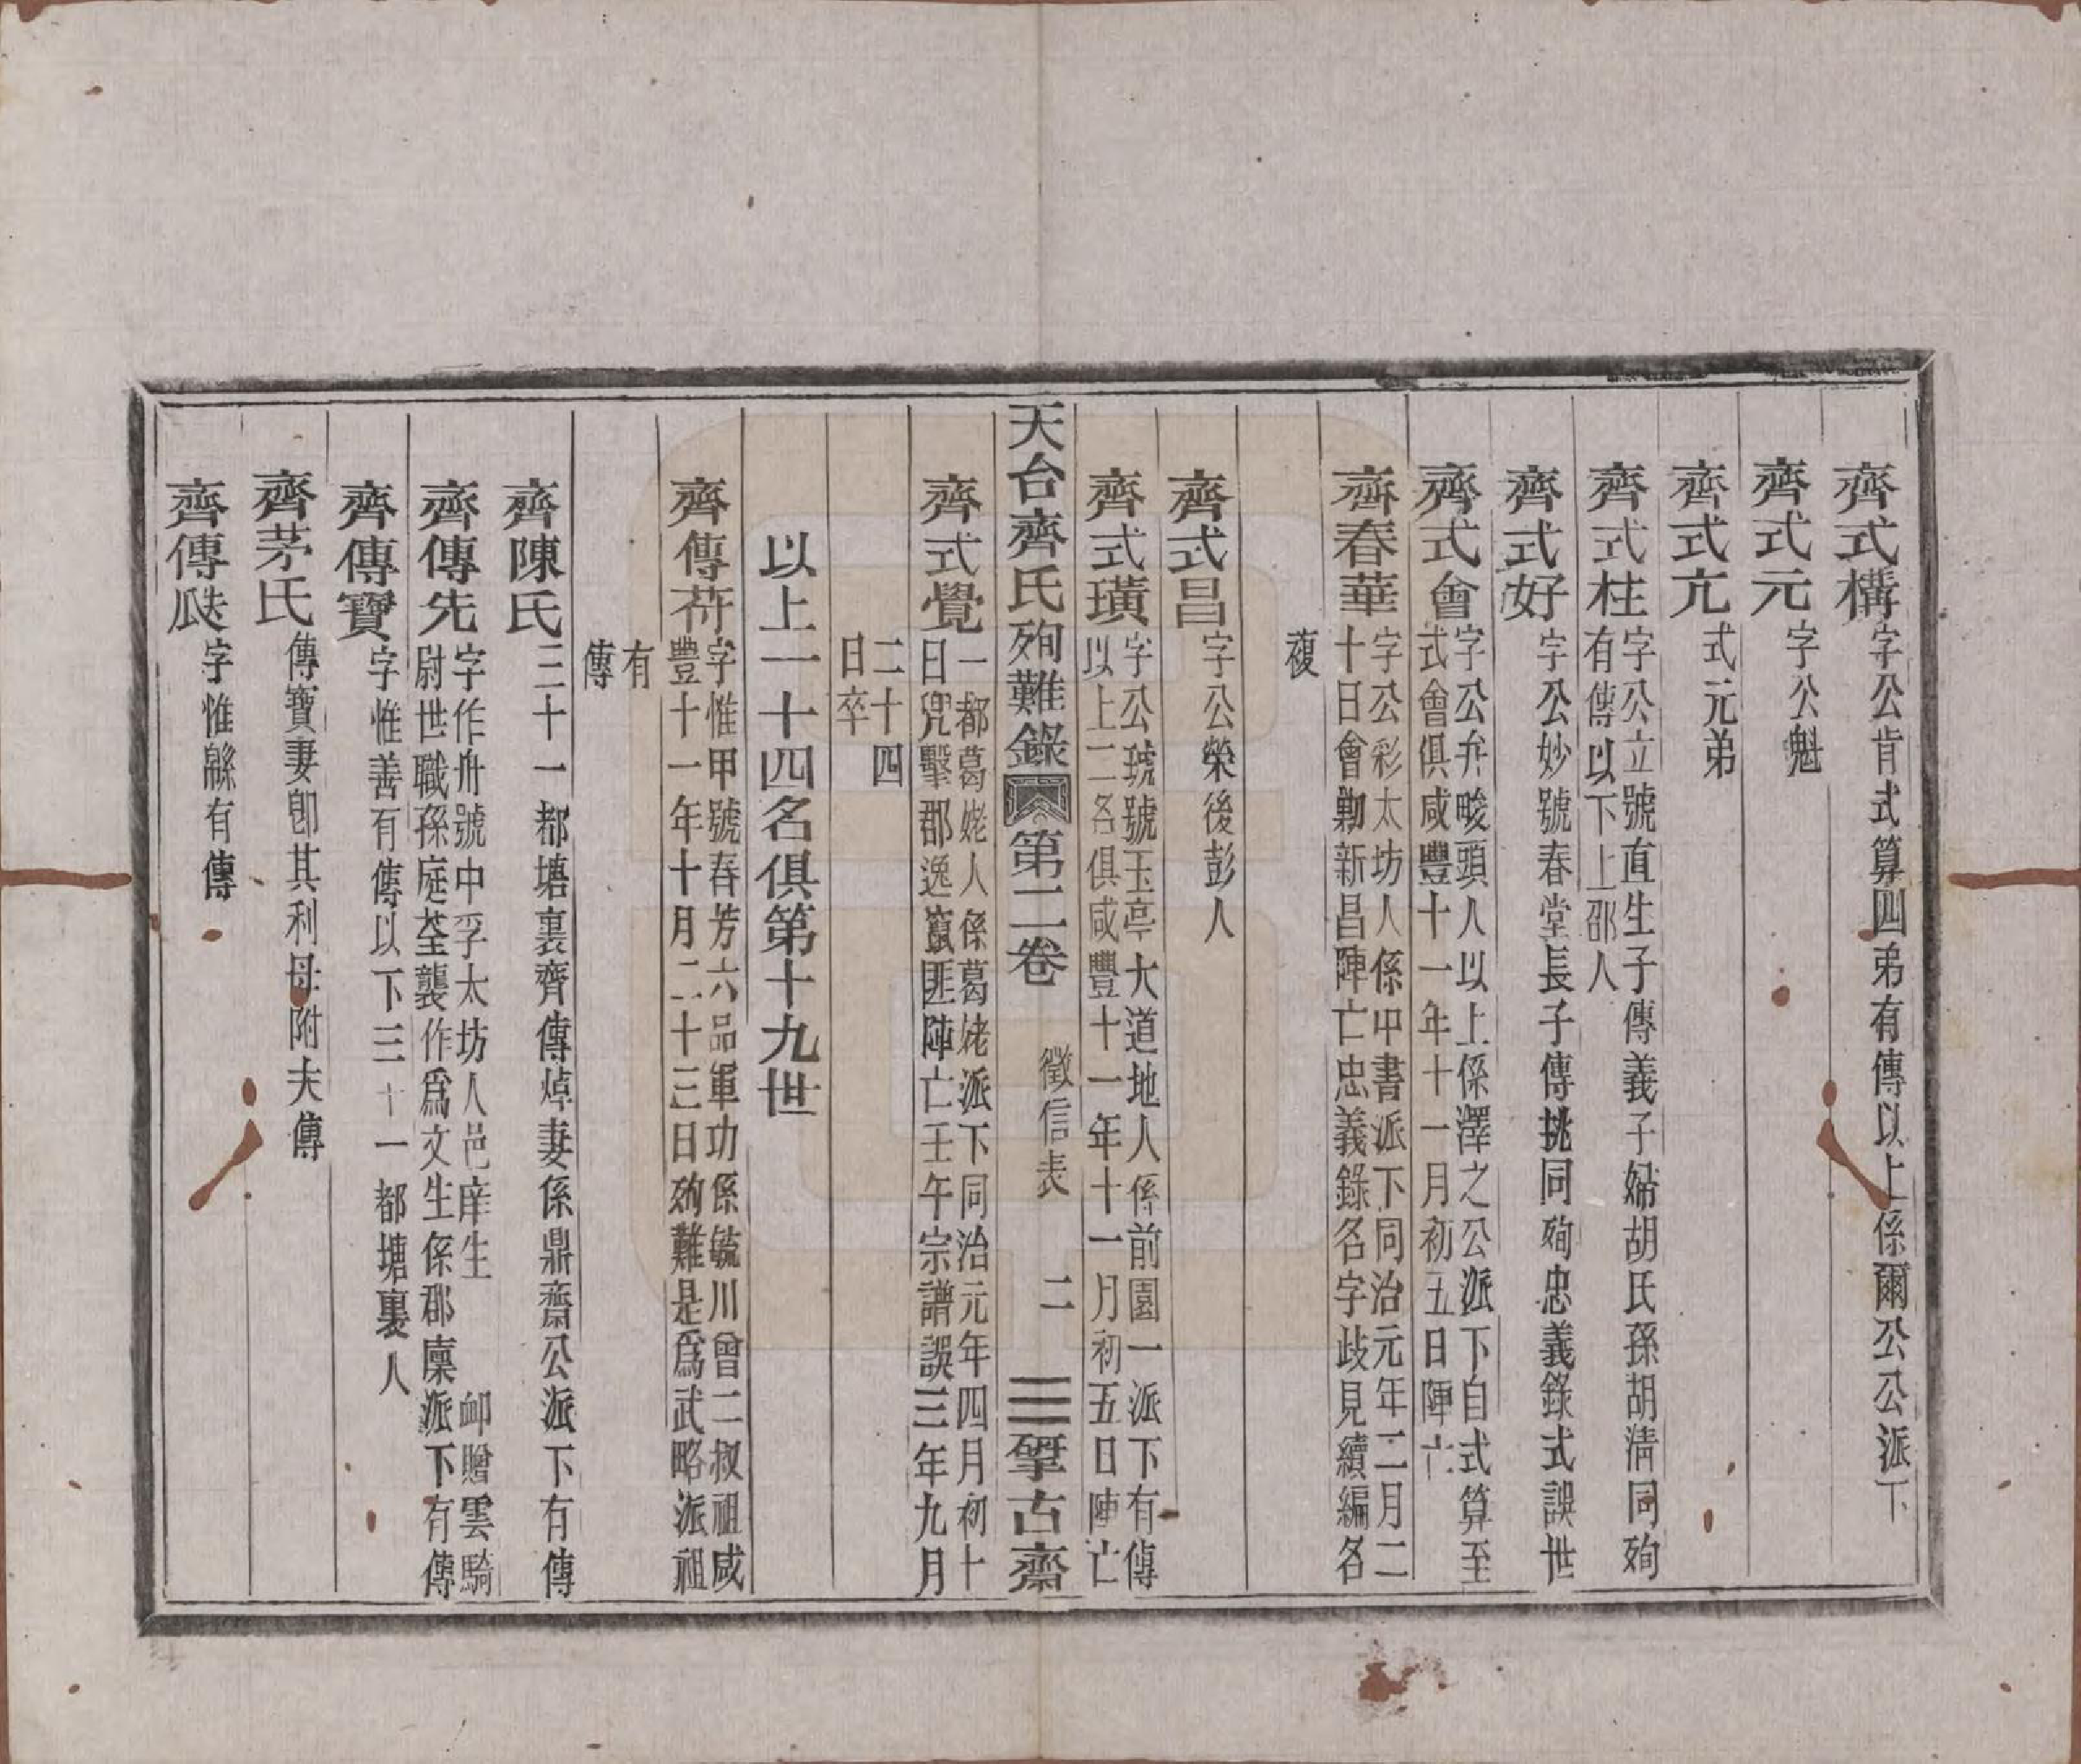 齊式構字公肯式算四弟有傳以上係爾公公派下
齊式元字公魁
齊式亢式元弟
齊式柱字公立號直生子傳義子婦胡氏孫胡淸同殉
有傳以下上邵人
齊式好字公妙號春堂長子傳挑同殉忠義錄式誤世
齊式會字公弁畯頭人以上係澤之公派下自式算至
式會俱咸豐十一年十一月初五日陣亡
齊春華字公彩太坊人係中書派下同治元年二月二
十日會勦新昌陣亡忠義錄名字歧見續編名
複
齊式昌字公榮後彭人
齊式璜字公琥號玉亭大道地人係前園一派下有傳
以上二名俱咸豐十一年十一月初五日陣亡
天台齊氏殉難錄 第二卷 徵信表 二 揅古齋
齊式覺一都葛姥人係葛姥派下同治元年四月初十
日兜擊郡逸竄匪陣亡壬午宗譜誤三年九月
二十四
日卒
以上一十四名俱第十九世
齊傳荇字惟甲號春芳六品軍功係毓川曾二叔祖咸
豐十一年十月二十三日殉難是爲武略派祖
有
傳
齊陳氏三十一都塘裏齊傳焯妻係鼎齋公派下有傳
齊傳先字作舟號中孚太坊人邑庠生 卹贈雲騎
尉世職孫庭荃襲作爲文生係郡廩派下有傳
齊傳寶字惟善有傳以下三十一都塘裏人
齊茅氏傳寶妻卽其利母附夫傳
齊傳瓞字惟緜有傳